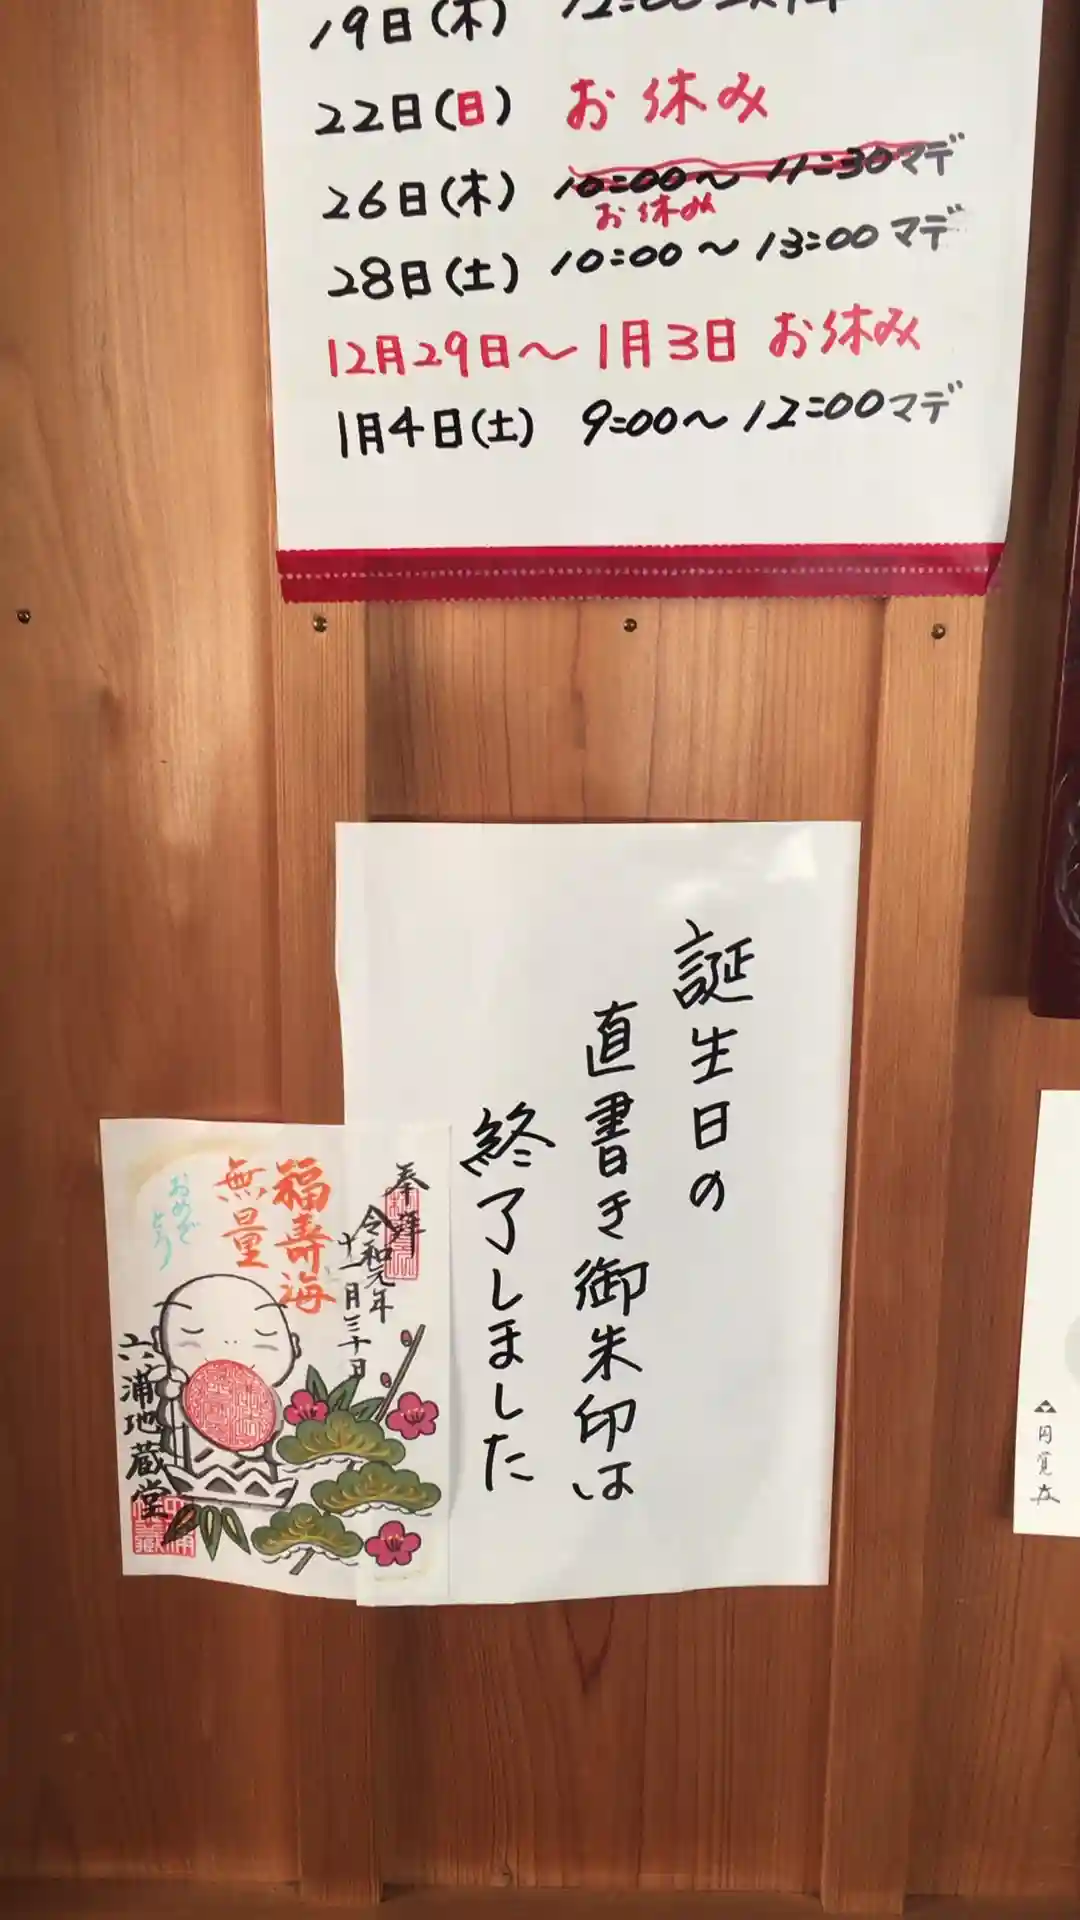 19日(木) 12:00
22日(日) お休み
26日(木) 10:00〜11:30マデ
お休み
28日(土) 10:00〜13:00マデ
12月29日〜1月3日 お休み
1月4日(土) 9:00〜12:00マデ
誕生日の
直書き御朱印は
終了しました
奉拝
令和元年
十一月三十日
福寿海
無量
おめでとう
六浦地蔵堂
円覚